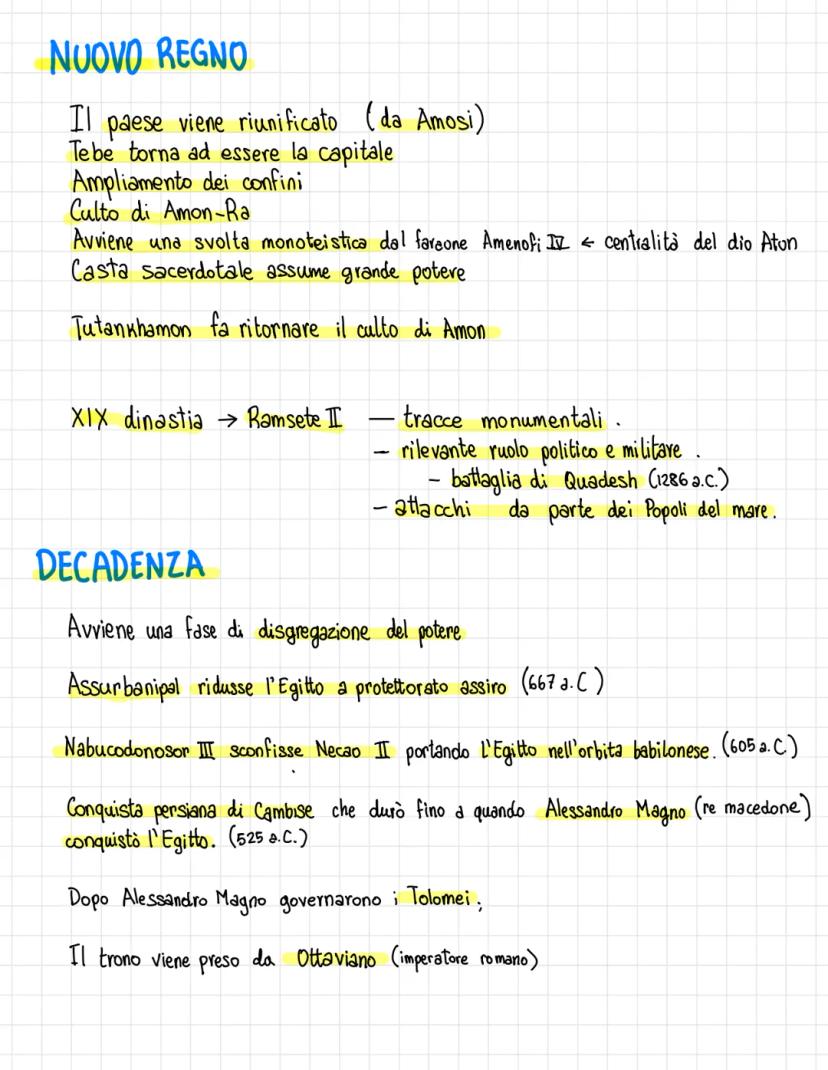 NUOVO REGNO
Il paese viene riunificato (da Amosi)
Tebe torna ad essere la capitale
Ampliamento dei confini
Culto di Amon-Ra
Avviene una svolta monoteistica dal faraone Amenofi IV ← centralità del dio Aton
Casta sacerdotale assume grande potere
Tutankhamon fa ritornare il culto di Amon
XIX dinastia → Ramsete II — tracce monumentali.
- rilevante ruolo politico e militare.
- battaglia di Quadesh (1286 a.C.)
- attacchi da parte dei Popoli del mare.
DECADENZA
Avviene una fase di disgregazione del potere
Assurbanipal ridusse l'Egitto a protettorato assiro (667 a.C)
Nabucodonosor III sconfisse Necao II portando l'Egitto nell'orbita babilonese. (605 a.C.)
Conquista persiana di Cambise che durò fino a quando Alessandro Magno (re macedone)
conquistò l'Egitto. (525 a.C.)
Dopo Alessandro Magno governarono i Tolomei;
Il trono viene preso da Ottaviano (imperatore romano)